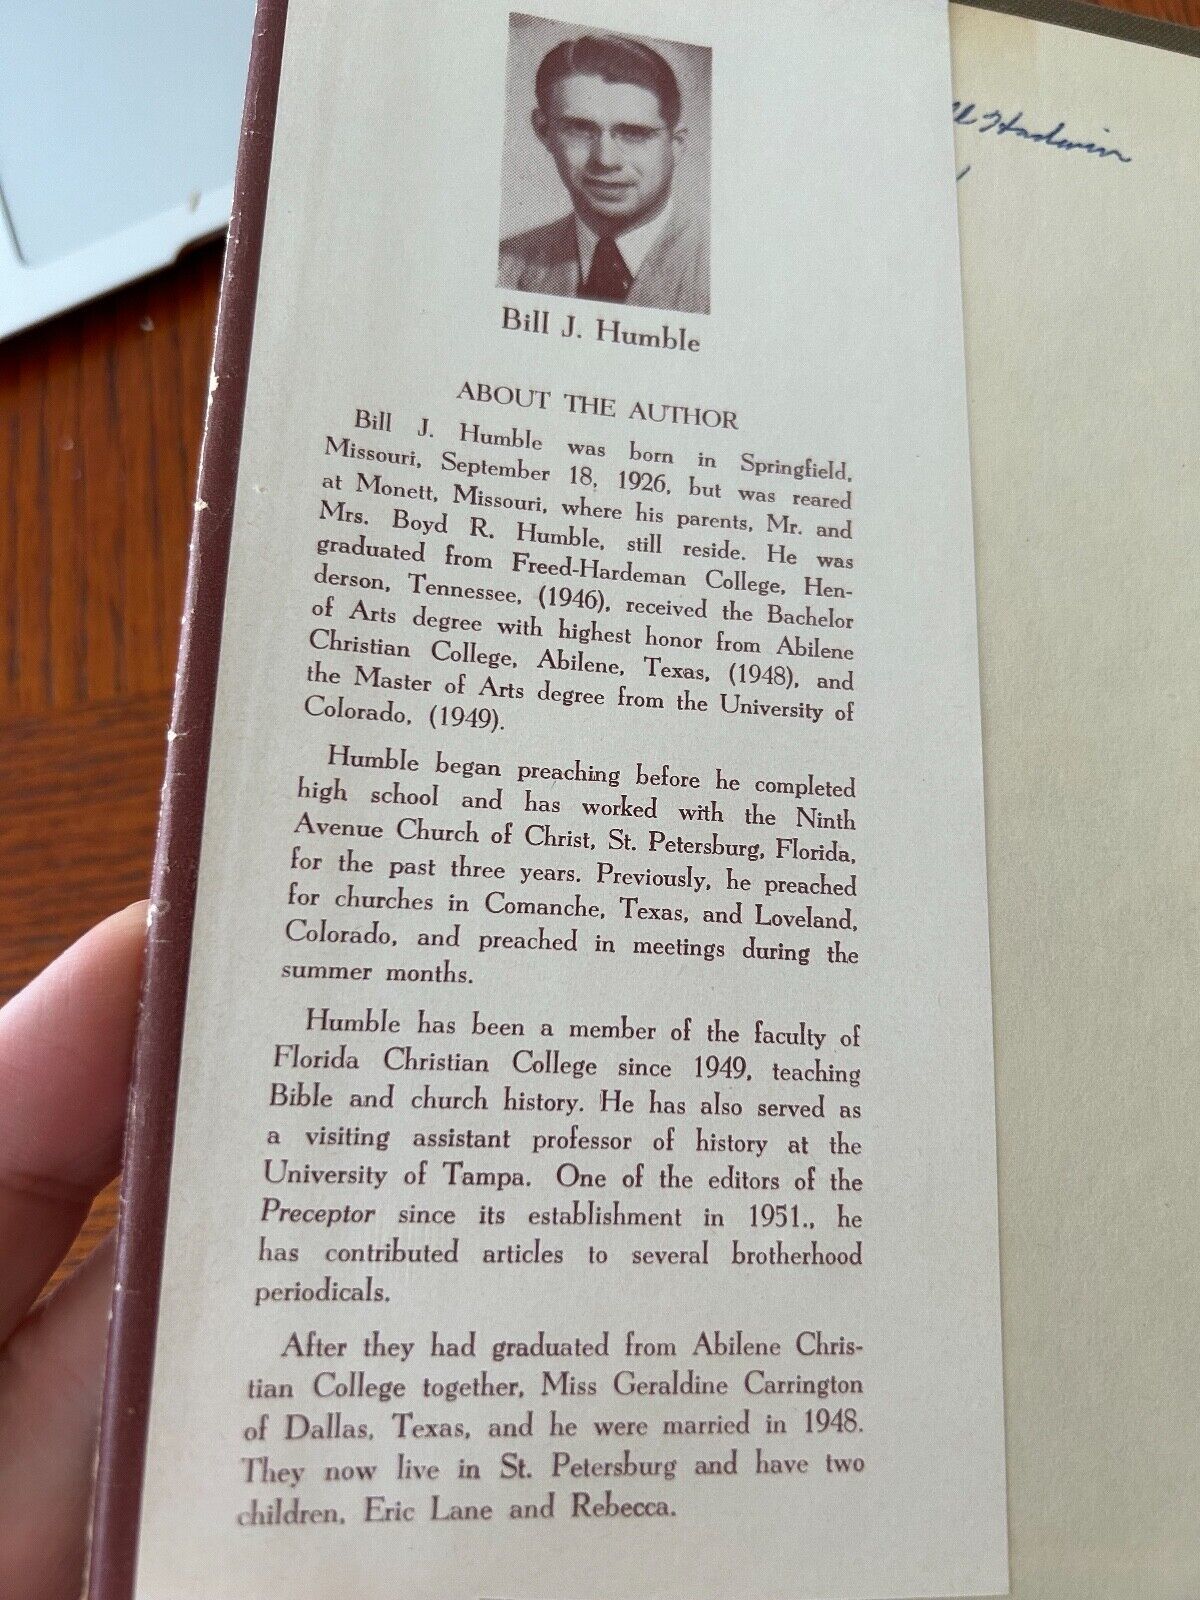 Hadwin
Bill J. Humble
ABOUT THE AUTHOR
Bill J. Humble was born in Springfield,
Missouri, September 18, 1926, but was reared
at Monett, Missouri, where his parents, Mr. and
Mrs. Boyd R. Humble, still reside. He was
graduated from Freed-Hardeman College, Hen-
derson, Tennessee, (1946), received the Bachelor
of Arts degree with highest honor from Abilene
Christian College, Abilene, Texas, (1948), and
the Master of Arts degree from the University of
Colorado, (1949).
Humble began preaching before he completed
high school and has worked with the Ninth
Avenue Church of Christ, St. Petersburg, Florida,
for the past three years. Previously, he preached
for churches in Comanche, Texas, and Loveland,
Colorado, and preached in meetings during the
summer months.
Humble has been a member of the faculty of
Florida Christian College since 1949, teaching
Bible and church history. He has also served as
a visiting assistant professor of history at the
University of Tampa. One of the editors of the
Preceptor since its establishment in 1951., he
has contributed articles to several brotherhood
periodicals.
After they had graduated from Abilene Chris-
tian College together, Miss Geraldine Carrington
of Dallas, Texas, and he were married in 1948.
They now live in St. Petersburg and have two
children, Eric Lane and Rebecca.